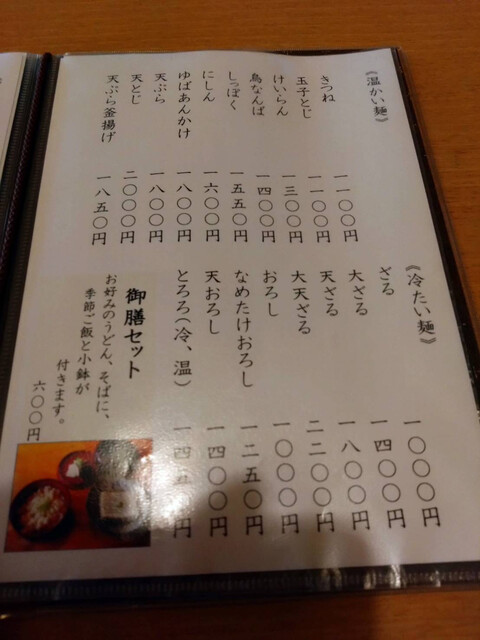 《温かい麺》
きつね 一一〇〇円
玉子とじ 一一〇〇円
けいらん 一三〇〇円
鳥なんば 一四〇〇円
しっぽく 一五五〇円
にしん 一六〇〇円
ゆばあんかけ 一八〇〇円
天ぷら 一八〇〇円
天とじ 二〇〇〇円
天ぷら釜揚げ 一八五〇円
《冷たい麺》
ざる 一〇〇〇円
大ざる 一四〇〇円
天ざる 一八〇〇円
大天ざる 二二〇〇円
おろし 一〇〇〇円
なめたけおろし 一二五〇円
天おろし 一四〇〇円
とろろ(冷、温) 一四五〇円
御膳セット
お好みのうどん、そばに、
季節ご飯と小鉢が
付きます。
六〇〇円